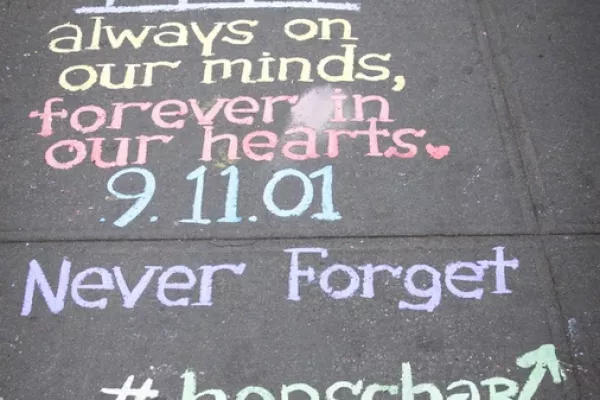 always on
our minds,
forever in
our hearts.
9.11.01
Never Forget
#honschar